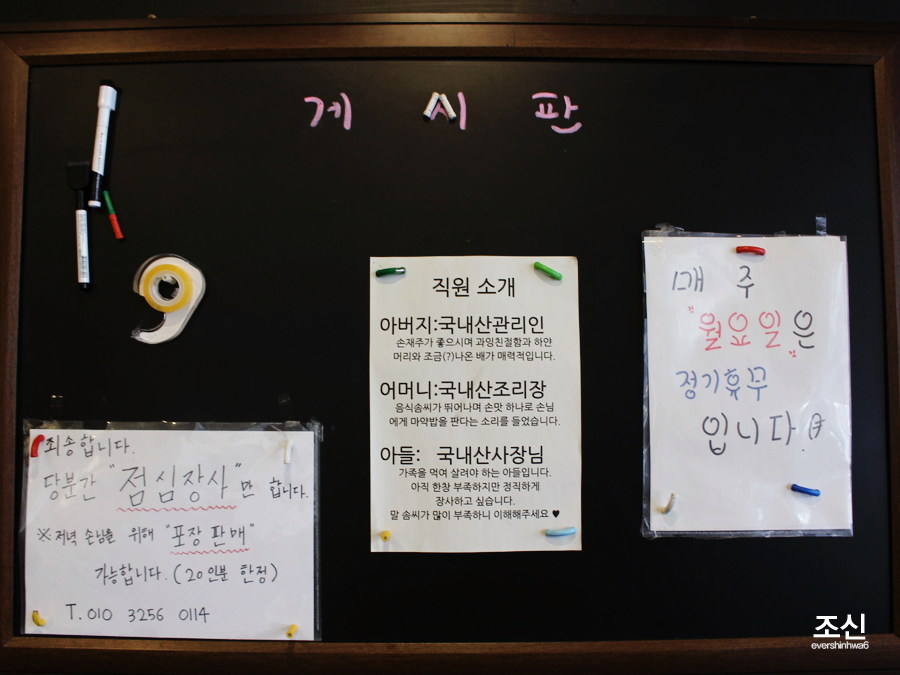 게 시 판
죄송합니다.
당분간 "점심장사"만 합니다.
※저녁 손님을 위해 "포장 판매"
가능합니다. (20인분 한정)
T. 010 3256 0114
직원 소개
아버지:국내산관리인
손재주가 좋으시며 과잉친절함과 하얀
머리와 조금(?)나온 배가 매력적입니다.
어머니:국내산조리장
음식솜씨가 뛰어나며 손맛 하나로 손님
에게 마약밥을 판다는 소리를 들었습니다.
아들: 국내산사장님
가족을 먹여 살려야 하는 아들입니다.
아직 한창 부족하지만 정직하게
장사하고 싶습니다.
말 솜씨가 많이 부족하니 이해해주세요 ♥
매 주
"월요일"은
정기휴무
입니다.
조신
evershinhwa6